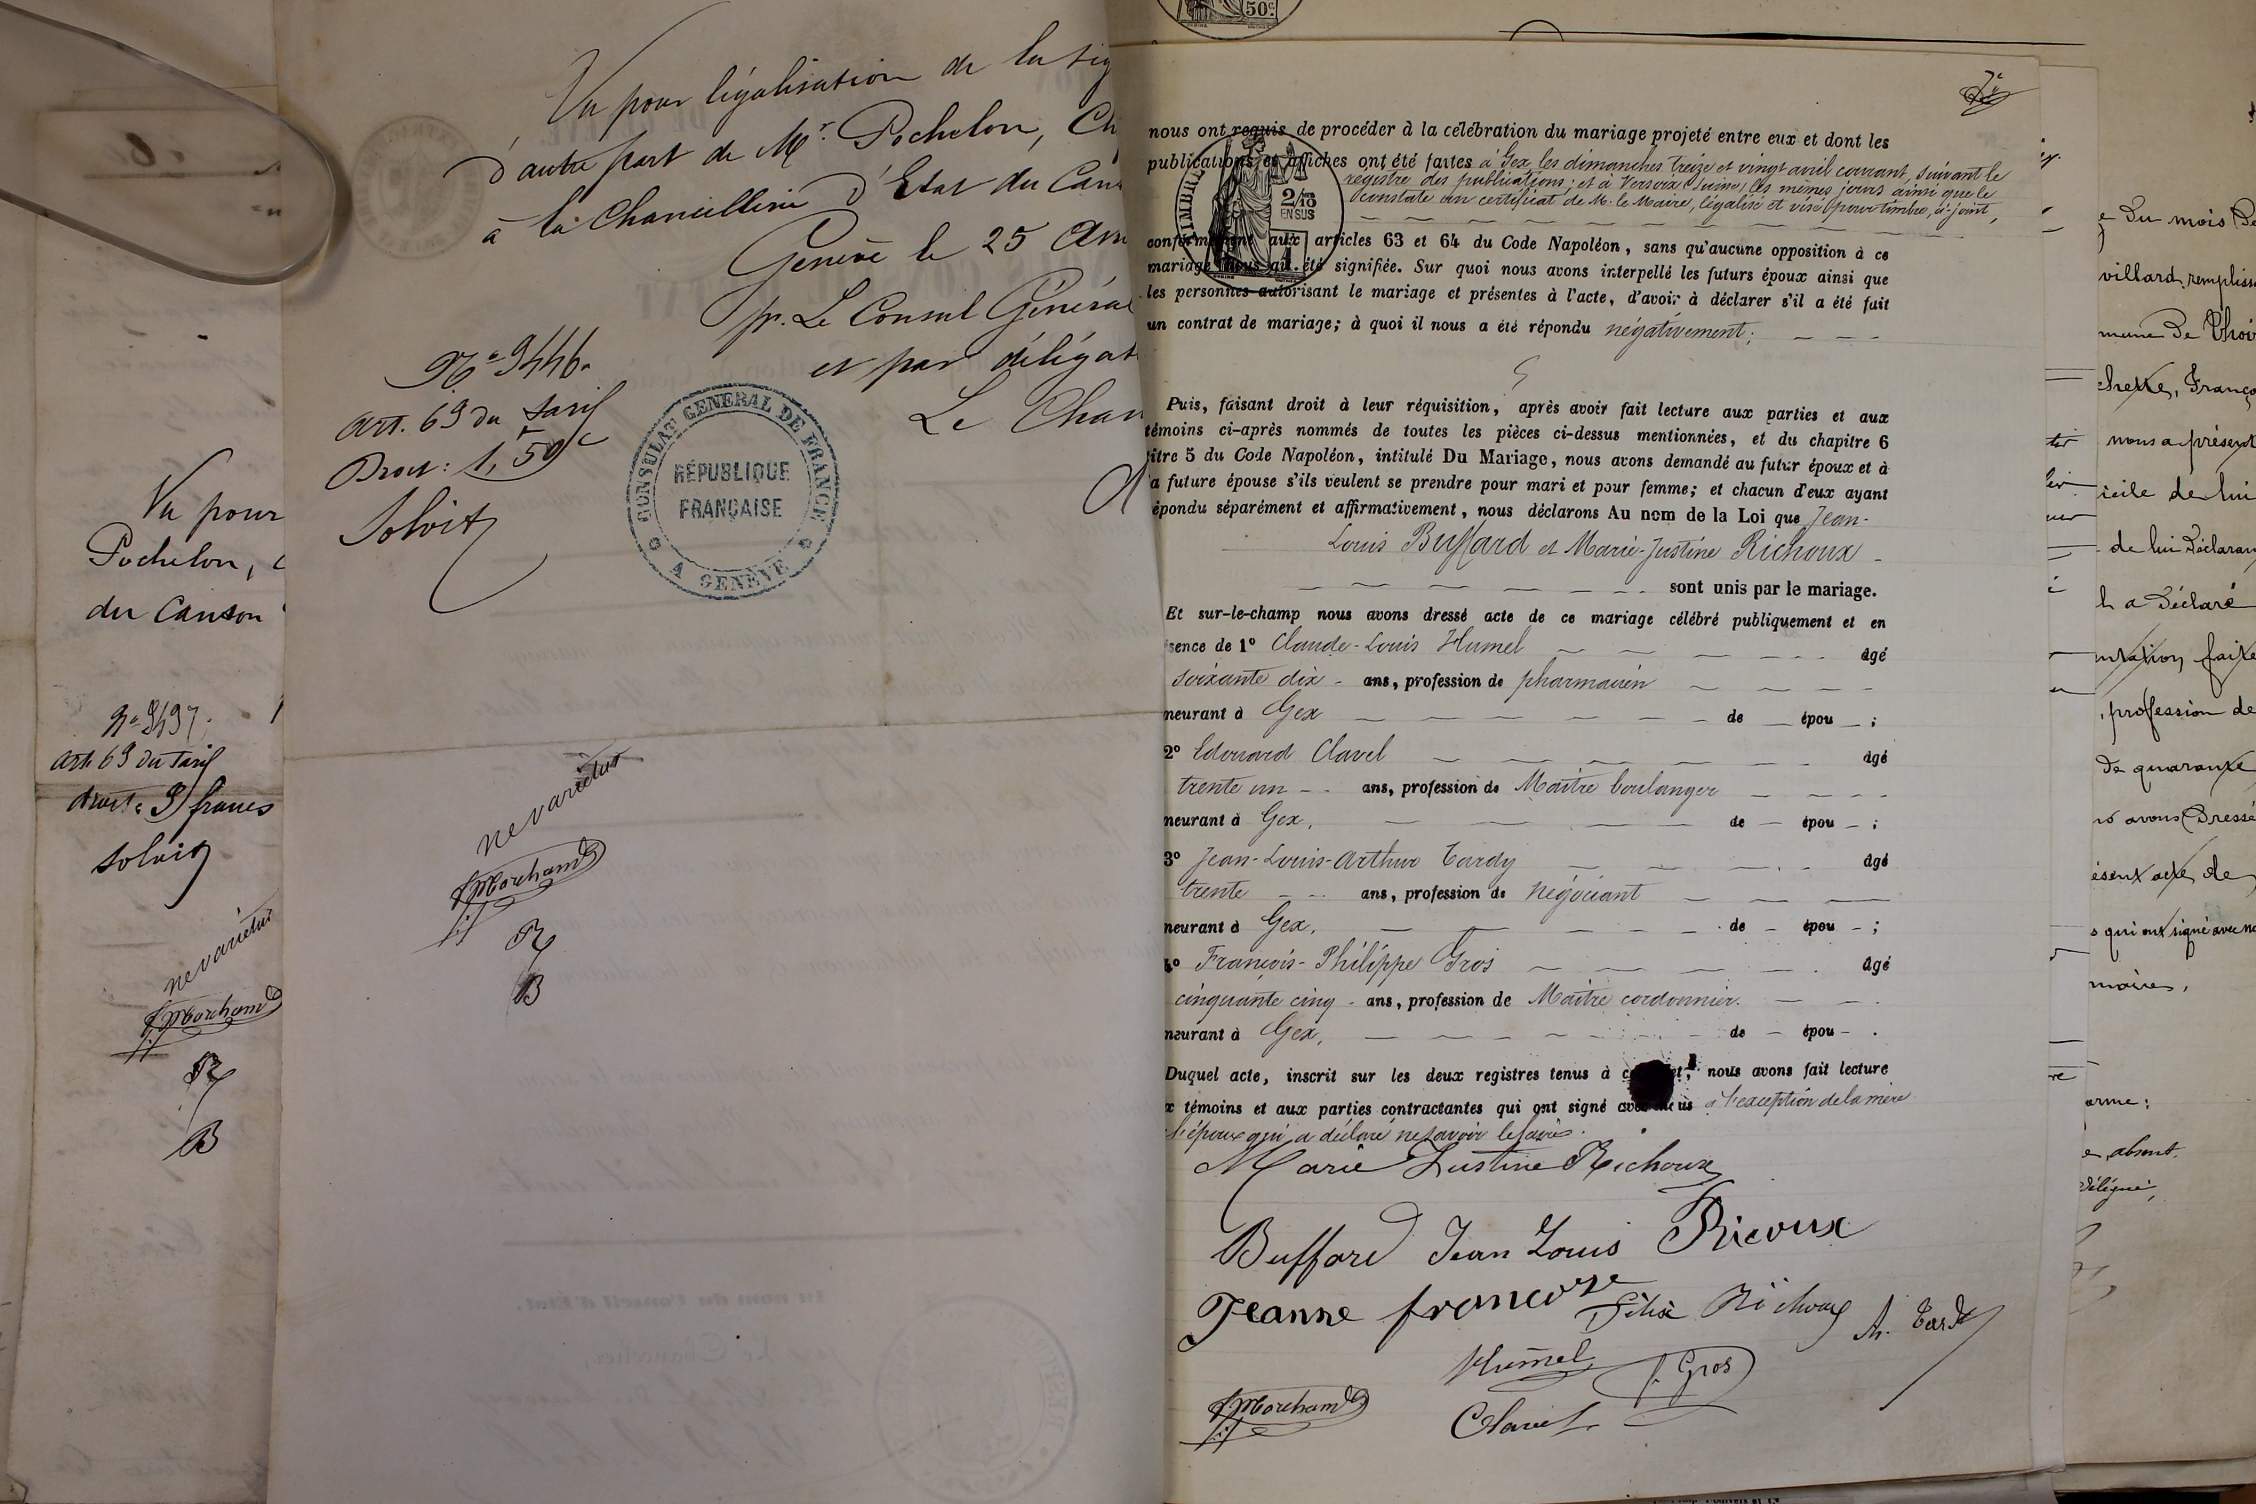 Vu pour
Pochelon,
du Canton
Art. 69 du Tarif
droit: 9 francs
Solvit
ne varietur
JMarchand
R
B
Vu pour légalisation de la sig
d'autre part de Mr. Pochelon, Ch
à la Chancellerie d'Etat du Can
Genève le 25 Avri
pr. Le Consul Général
et par délégat
Le Chan
No 9446.
Art. 69 du Tarif
Droit: 1,50c
Solvit
CONSULAT GENERAL DE FRANCE
RÉPUBLIQUE
FRANÇAISE
A GENÈVE
ne varietur
JMarchand
R
B
50c.
nous ont requis de procéder à la célébration du mariage projeté entre eux et dont les
publications et affiches ont été faites à Gex les dimanches treize et vingt avril courant, suivant le
registre des publications; et à Versoix, Suisse, les mêmes jours ainsi que le
constate un certificat de M. le Maire, légalisé et visé pour timbre, ci-joint,
TIMBRE
2/10
EN SUS
conformément aux articles 63 et 64 du Code Napoléon, sans qu'aucune opposition à ce
mariage nous ait été signifiée. Sur quoi nous avons interpellé les futurs époux ainsi que
les personnes autorisant le mariage et présentes à l'acte, d'avoir à déclarer s'il a été fait
un contrat de mariage; à quoi il nous a été répondu négativement;
Puis, faisant droit à leur réquisition, après avoir fait lecture aux parties et aux
témoins ci-après nommés de toutes les pièces ci-dessus mentionnées, et du chapitre 6
itre 5 du Code Napoléon, intitulé Du Mariage, nous avons demandé au futur époux et à
a future épouse s'ils veulent se prendre pour mari et pour femme; et chacun d'eux ayant
épondu séparément et affirmativement, nous déclarons Au nom de la Loi que Jean-
Louis Buffard et Marie-Justine Richoux
sont unis par le mariage.
Et sur-le-champ nous avons dressé acte de ce mariage célébré publiquement et en
sence de 1o Claude-Louis Humel âgé
soixante dix - ans, profession de pharmacien
meurant à Gex de épou ;
2o Edouard Clavel âgé
trente un ans, profession de Maître boulanger
meurant à Gex, de épou ;
3o Jean-Louis-Arthur Tardy âgé
trente ans, profession de négociant
meurant à Gex, de épou ;
4o François-Philippe Gros âgé
cinquante cinq - ans, profession de Maître cordonnier.
meurant à Gex, de épou .
Duquel acte, inscrit sur les deux registres tenus à cet effet, nous avons fait lecture
x témoins et aux parties contractantes qui ont signé avec nous à l'exception de la mère
de l'époux qui a déclaré ne savoir le faire.
Marie Justine Richoux
Buffard Jean Louis Ricoux
Jeanne françoise Félix Richoux A. Tardy
Humel f. Gros
JMarchand Clavel
du mois de
villard, remplissa
mune de Thoir
chette, Franço
nous a présent
icile de lui
de lui déclaran
h a déclaré
ntation faite
, profession de
de quarante
us avons dressé
ésent acte de
s qui ont signé avec no
maires.
orme:
e, absent.
délégué,